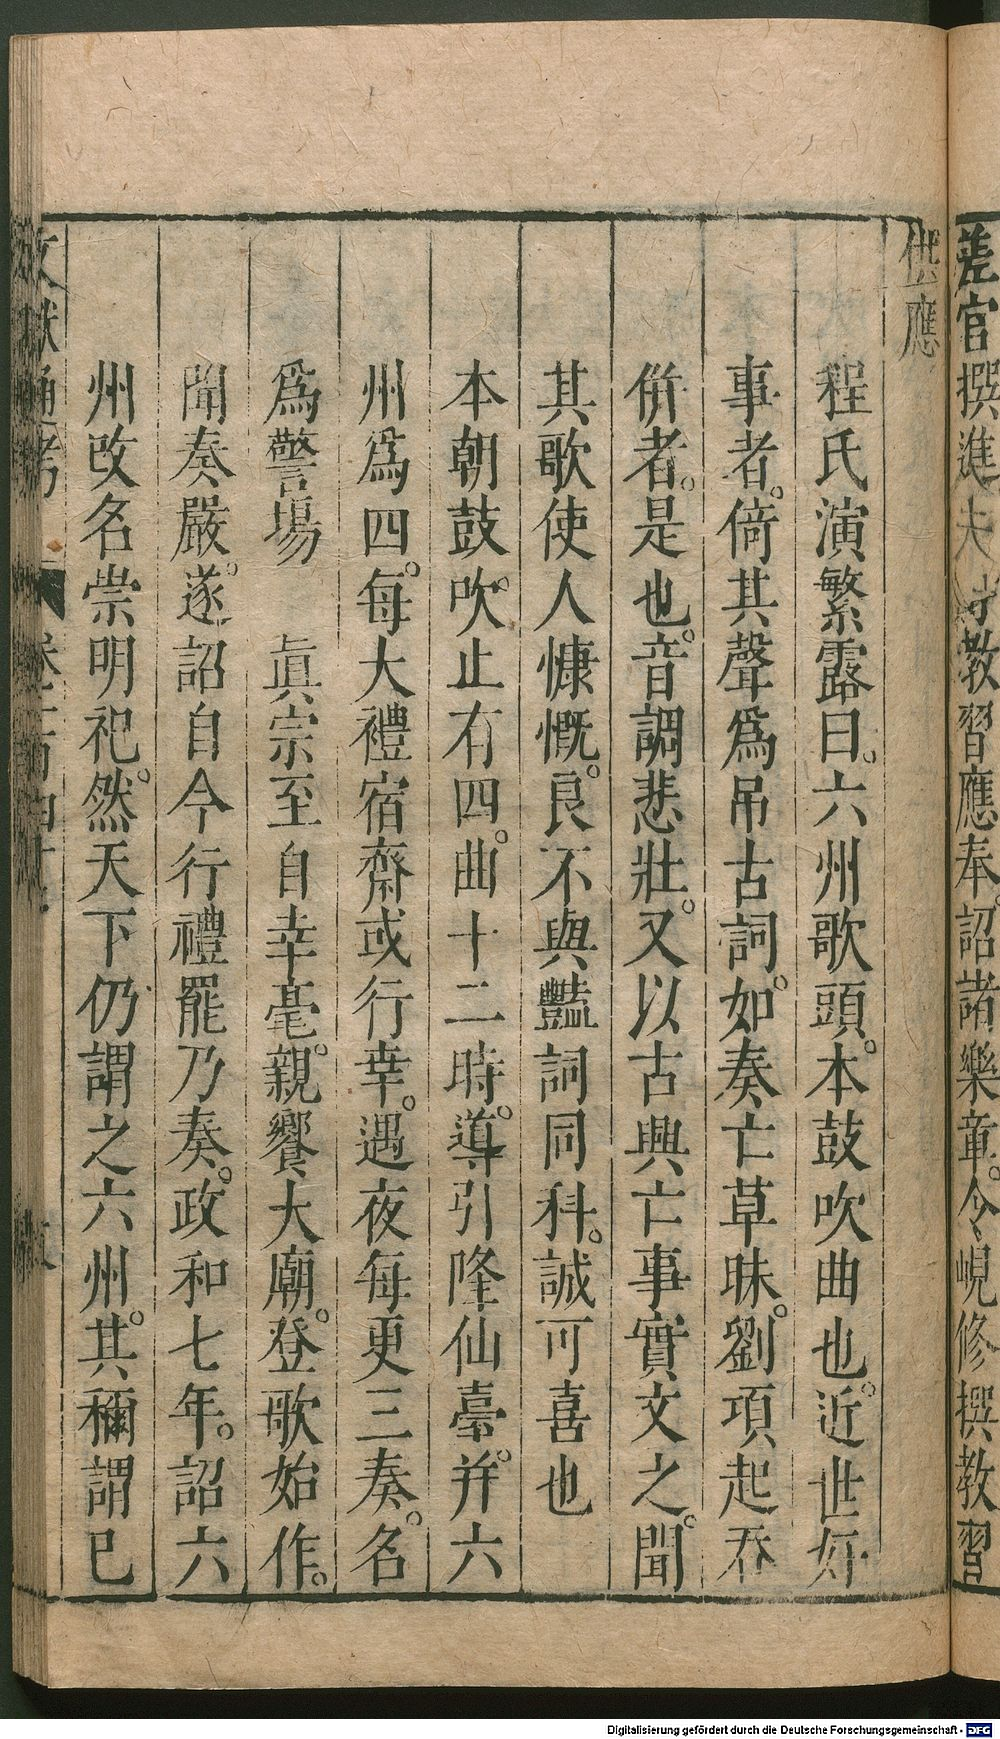 差官撰進夫教習應奉。詔諸樂章。令峴修撰教習
供應
程氏演繁露曰。六州歌頭。本鼓吹曲也。近世好
事者。倚其聲爲吊古詞。如奏亡草昧。劉項起吞
併者。是也。音調悲壯。又以古興亡事實文之。聞
其歌使人慷慨。良不與豔詞同科。誠可喜也
本朝鼓吹。止有四。曲十二時。導引隆仙臺。并六
州爲四。每大禮宿齋或行幸。遇夜每更三奏。名
爲警場　眞宗至自幸亳。親饗大廟。登歌始作。
聞奏嚴。遂詔自今行禮罷乃奏。政和七年。詔六
州改名崇明祀。然天下仍謂之六州。其稱謂已
文獻通考
Digitalisierung gefördert durch die Deutsche Forschungsgemeinschaft - DFG